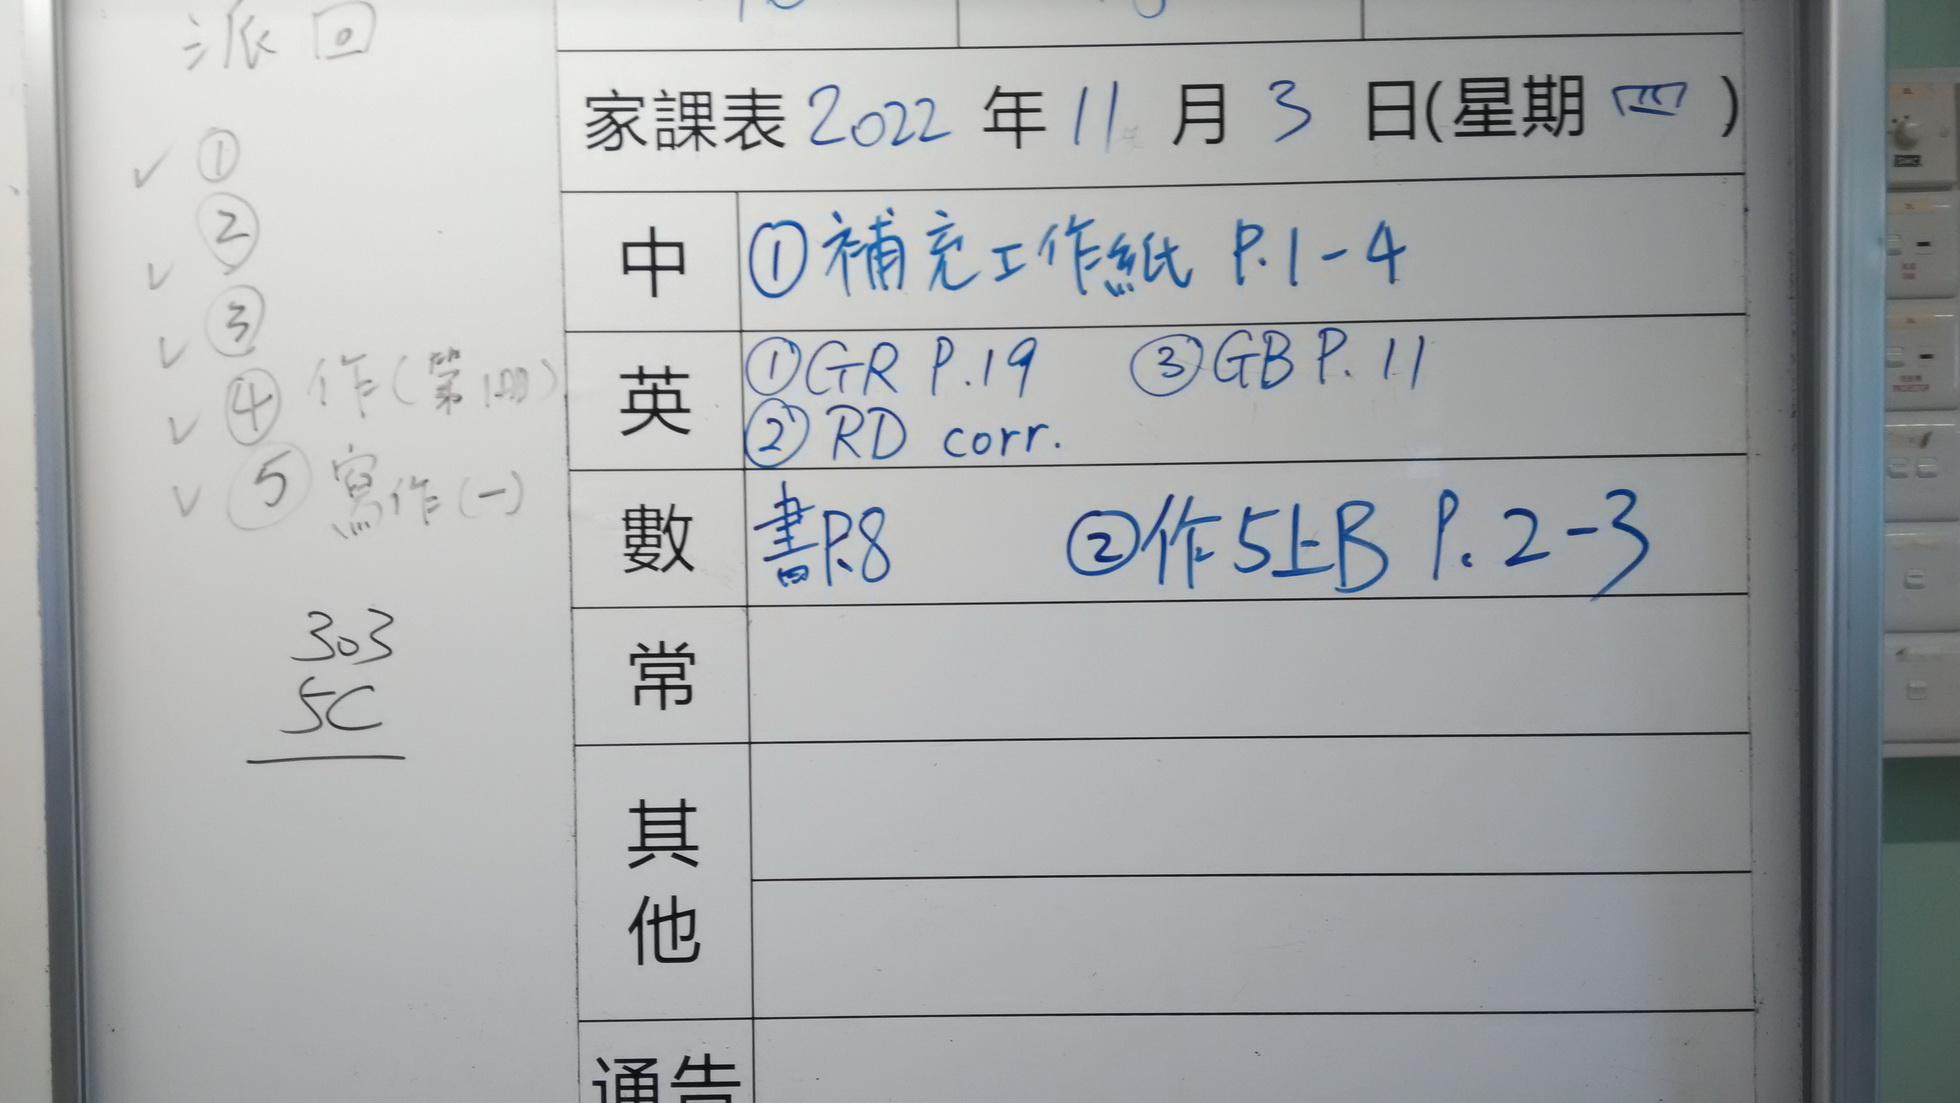 派回
①
②
③
④ 作(第1冊)
⑤ 寫作(一)
303
5C
家課表 2022 年 11 月 3 日(星期 四 )
中 ①補充工作紙 P.1-4
英 ①GR P.19 ③GB P.11
②RD corr.
數 書P.8 ②作5上B P.2-3
常
其他
通告